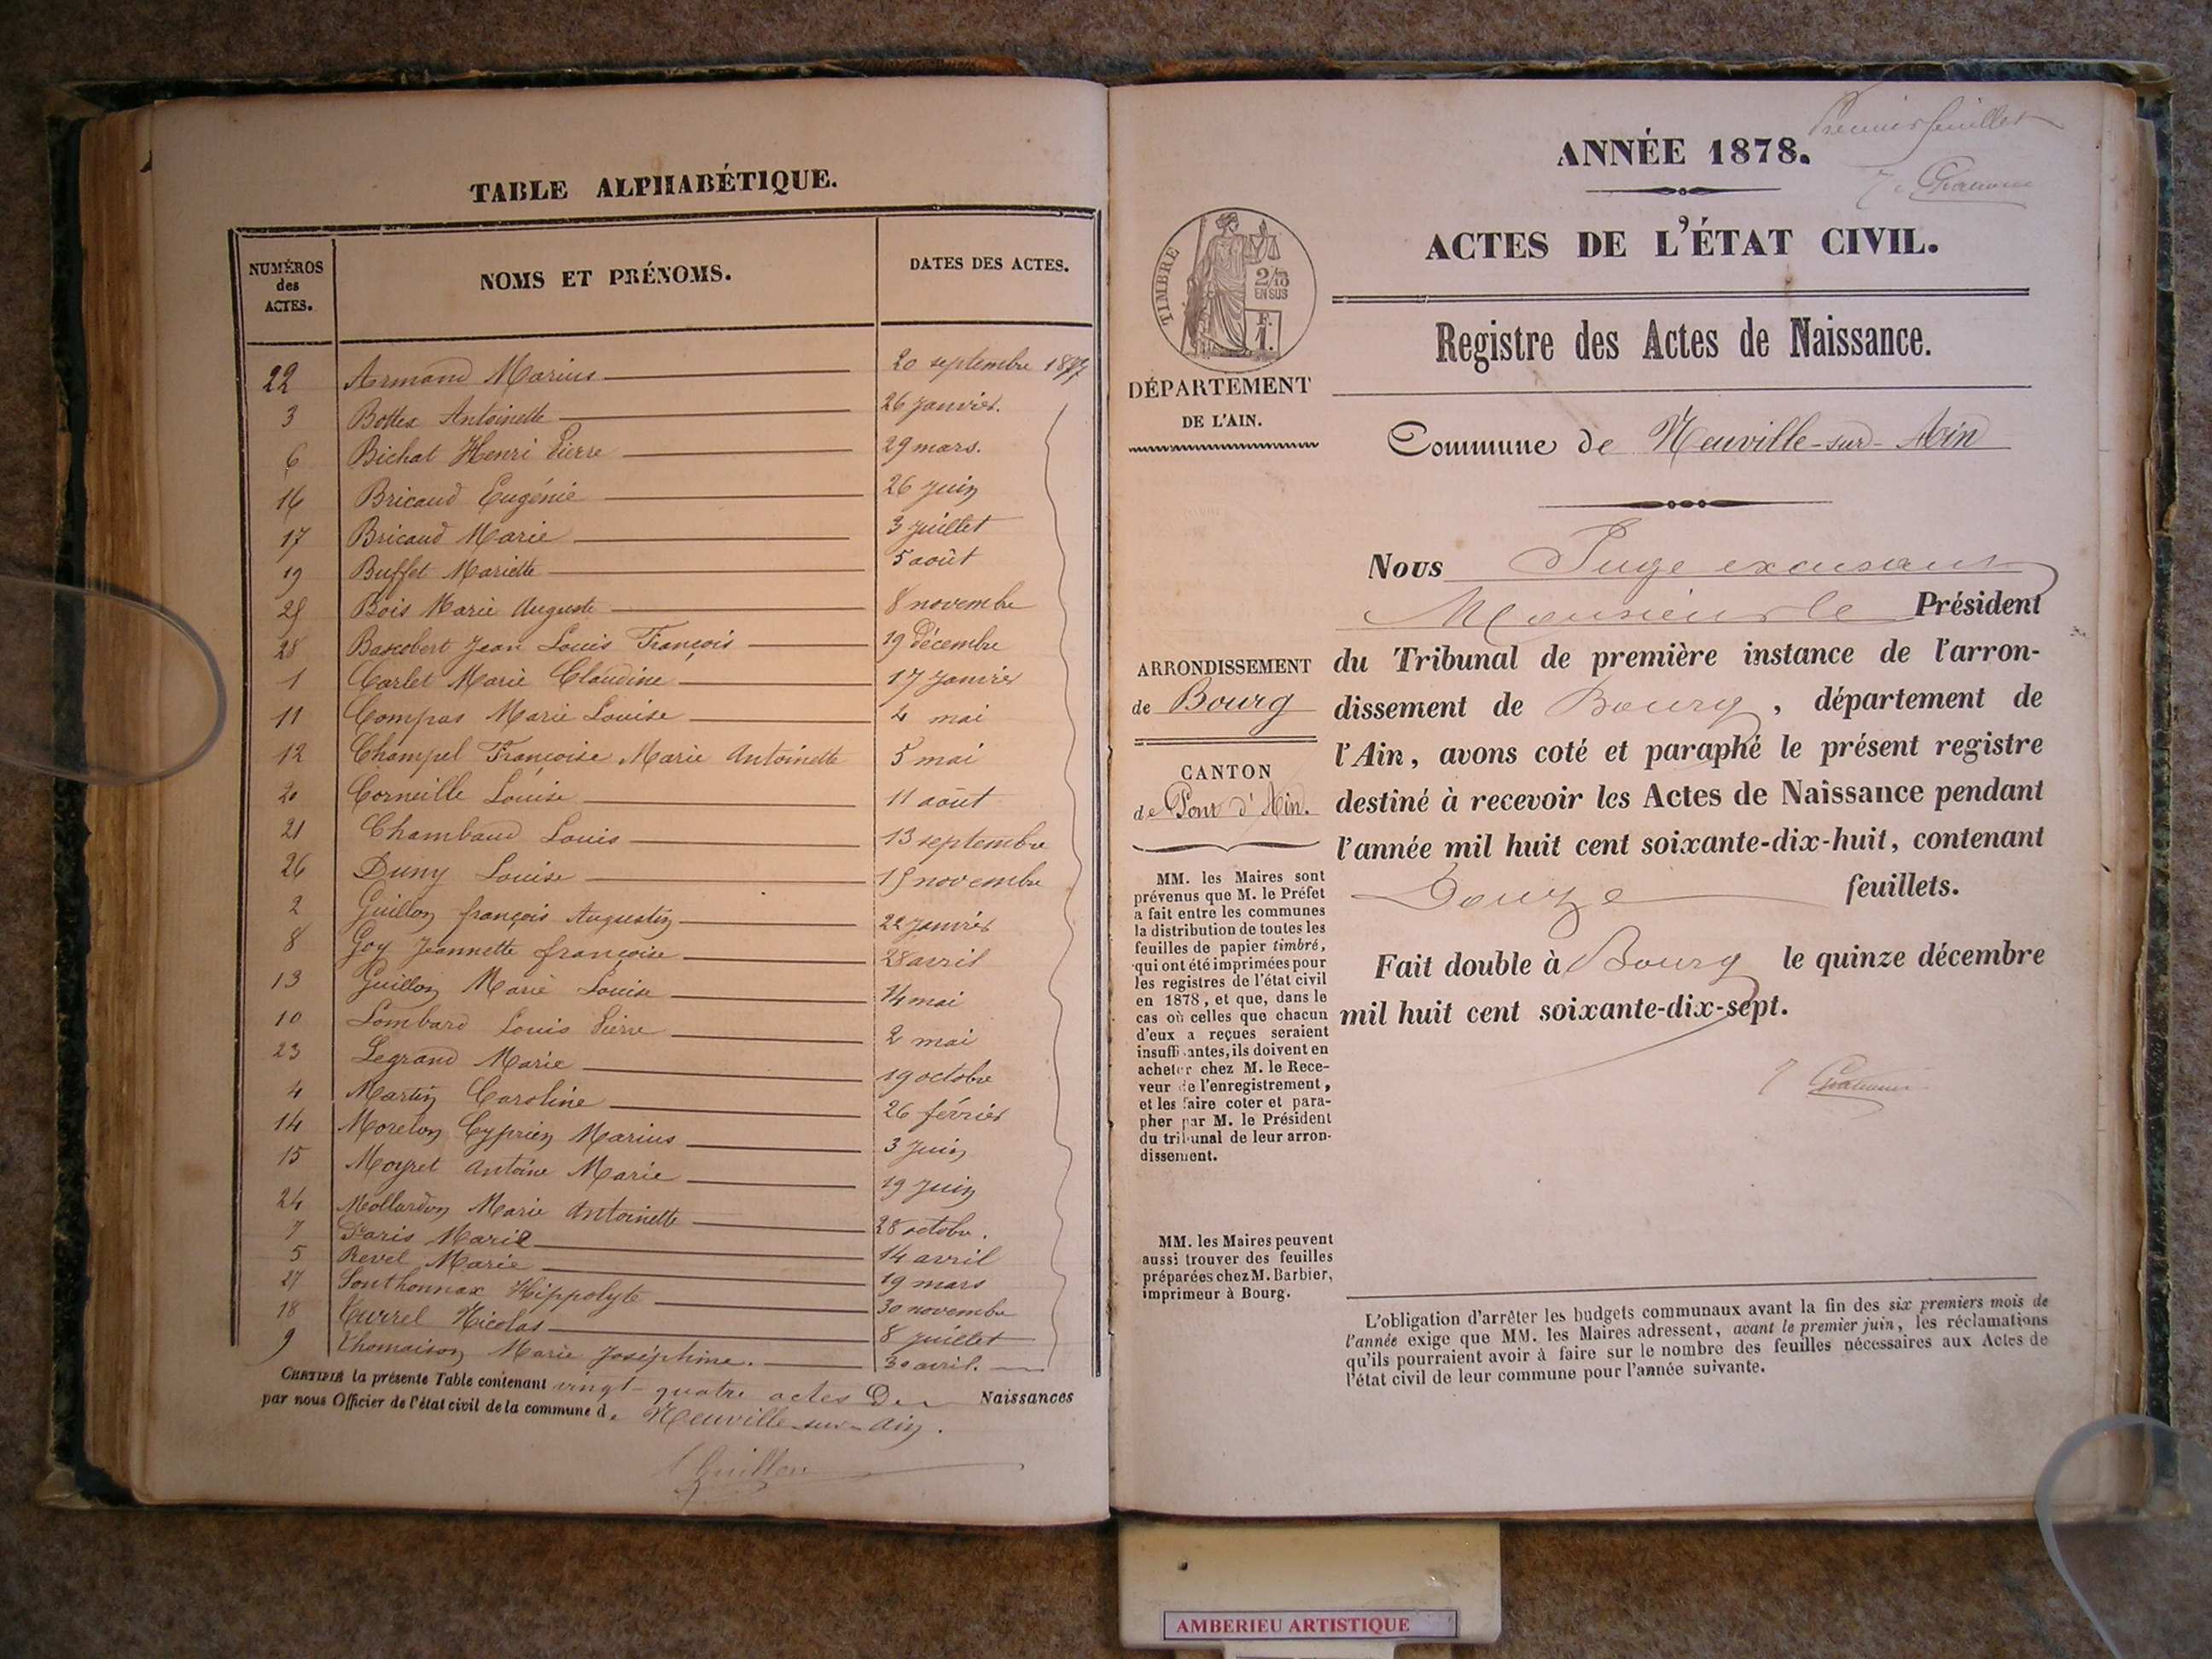 TABLE ALPHABÉTIQUE.
NUMÉROS des ACTES.
NOMS ET PRÉNOMS.
DATES DES ACTES.
22 Armand Marius 20 septembre 1877
3 Bottex Antoinette 26 janvier.
6 Bichat Henri Pierre 29 mars.
16 Bricaud Eugénie 26 juin
17 Bricaud Marie 3 juillet
19 Buffet Mariette 5 août
25 Bois Marie Auguste 8 novembre
28 Bascobert Jean Louis François 19 décembre
1 Carlet Marie Claudine 17 janvier
11 Compas Marie Louise 4 mai
12 Champel Françoise Marie Antoinette 5 mai
20 Corneille Louise 11 août
21 Chambaud Louis 13 septembre
26 Duny Louise 15 novembre
2 Guillon françois Augustin 22 janvier
8 Goy Jeannette françoise 28 avril
13 Guillon Marie Louise 14 mai
10 Lombard Louis Pierre 2 mai
23 Legrand Marie 19 octobre
4 Martin Caroline 26 février
14 Moreton Cyprien Marius 3 juin
15 Moyret Antoine Marie 19 juin
24 Mollardon Marie Antoinette 28 octobre.
7 Paris Marie 14 avril
5 Revel Marie 19 mars
27 Southonnax Hippolyte 30 novembre
18 Turrel Nicolas 8 juillet
9 Thomaison Marie Joséphine. 30 avril.
CERTIFIÉ la présente Table contenant vingt-quatre actes De Naissances
par nous Officier de l'état civil de la commune de Neuville-sur-Ain.
Guillon
Premier feuillet
ANNÉE 1878.
ACTES DE L'ÉTAT CIVIL.
TIMBRE
2/10
EN SUS
F.
1.
Registre des Actes de Naissance.
DÉPARTEMENT
DE L'AIN.
Commune de Neuville-sur-Ain
Nous Juge excusant
Monsieur le Président
ARRONDISSEMENT
de Bourg
du Tribunal de première instance de l'arron-
dissement de Bourg, département de
l'Ain, avons coté et paraphé le présent registre
CANTON
de Pont d'Ain.
destiné à recevoir les Actes de Naissance pendant
l'année mil huit cent soixante-dix-huit, contenant
Douze feuillets.
Fait double à Bourg le quinze décembre
mil huit cent soixante-dix-sept.
MM. les Maires sont
prévenus que M. le Préfet
a fait entre les communes
la distribution de toutes les
feuilles de papier timbré,
qui ont été imprimées pour
les registres de l'état civil
en 1878, et que, dans le
cas où celles que chacun
d'eux a reçues seraient
insuffisantes, ils doivent en
acheter chez M. le Rece-
veur de l'enregistrement,
et les faire coter et para-
pher par M. le Président
du tribunal de leur arron-
dissement.
MM. les Maires peuvent
aussi trouver des feuilles
préparées chez M. Barbier,
imprimeur à Bourg.
L'obligation d'arrêter les budgets communaux avant la fin des six premiers mois de
l'année exige que MM. les Maires adressent, avant le premier juin, les réclamations
qu'ils pourraient avoir à faire sur le nombre des feuilles nécessaires aux Actes de
l'état civil de leur commune pour l'année suivante.
AMBERIEU ARTISTIQUE